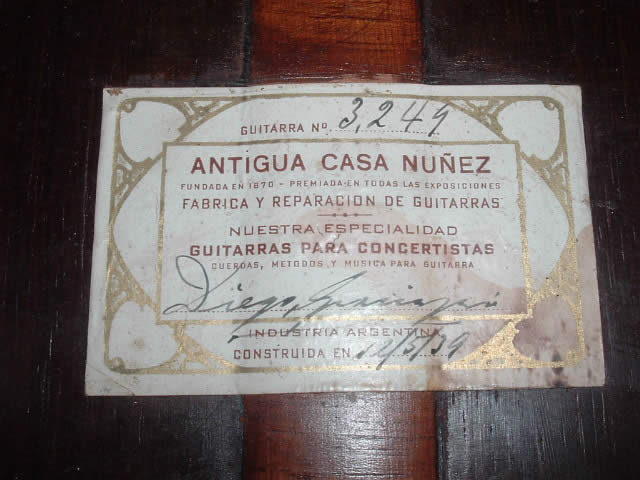 GUITARRA Nº 3,249
ANTIGUA CASA NUÑEZ
FUNDADA EN 1870 - PREMIADA EN TODAS LAS EXPOSICIONES
FABRICA Y REPARACION DE GUITARRAS
NUESTRA ESPECIALIDAD
GUITARRAS PARA CONCERTISTAS
CUERDAS, METODOS Y MUSICA PARA GUITARRA
Diego Gracia
INDUSTRIA ARGENTINA
CONSTRUIDA EN 12/5/39